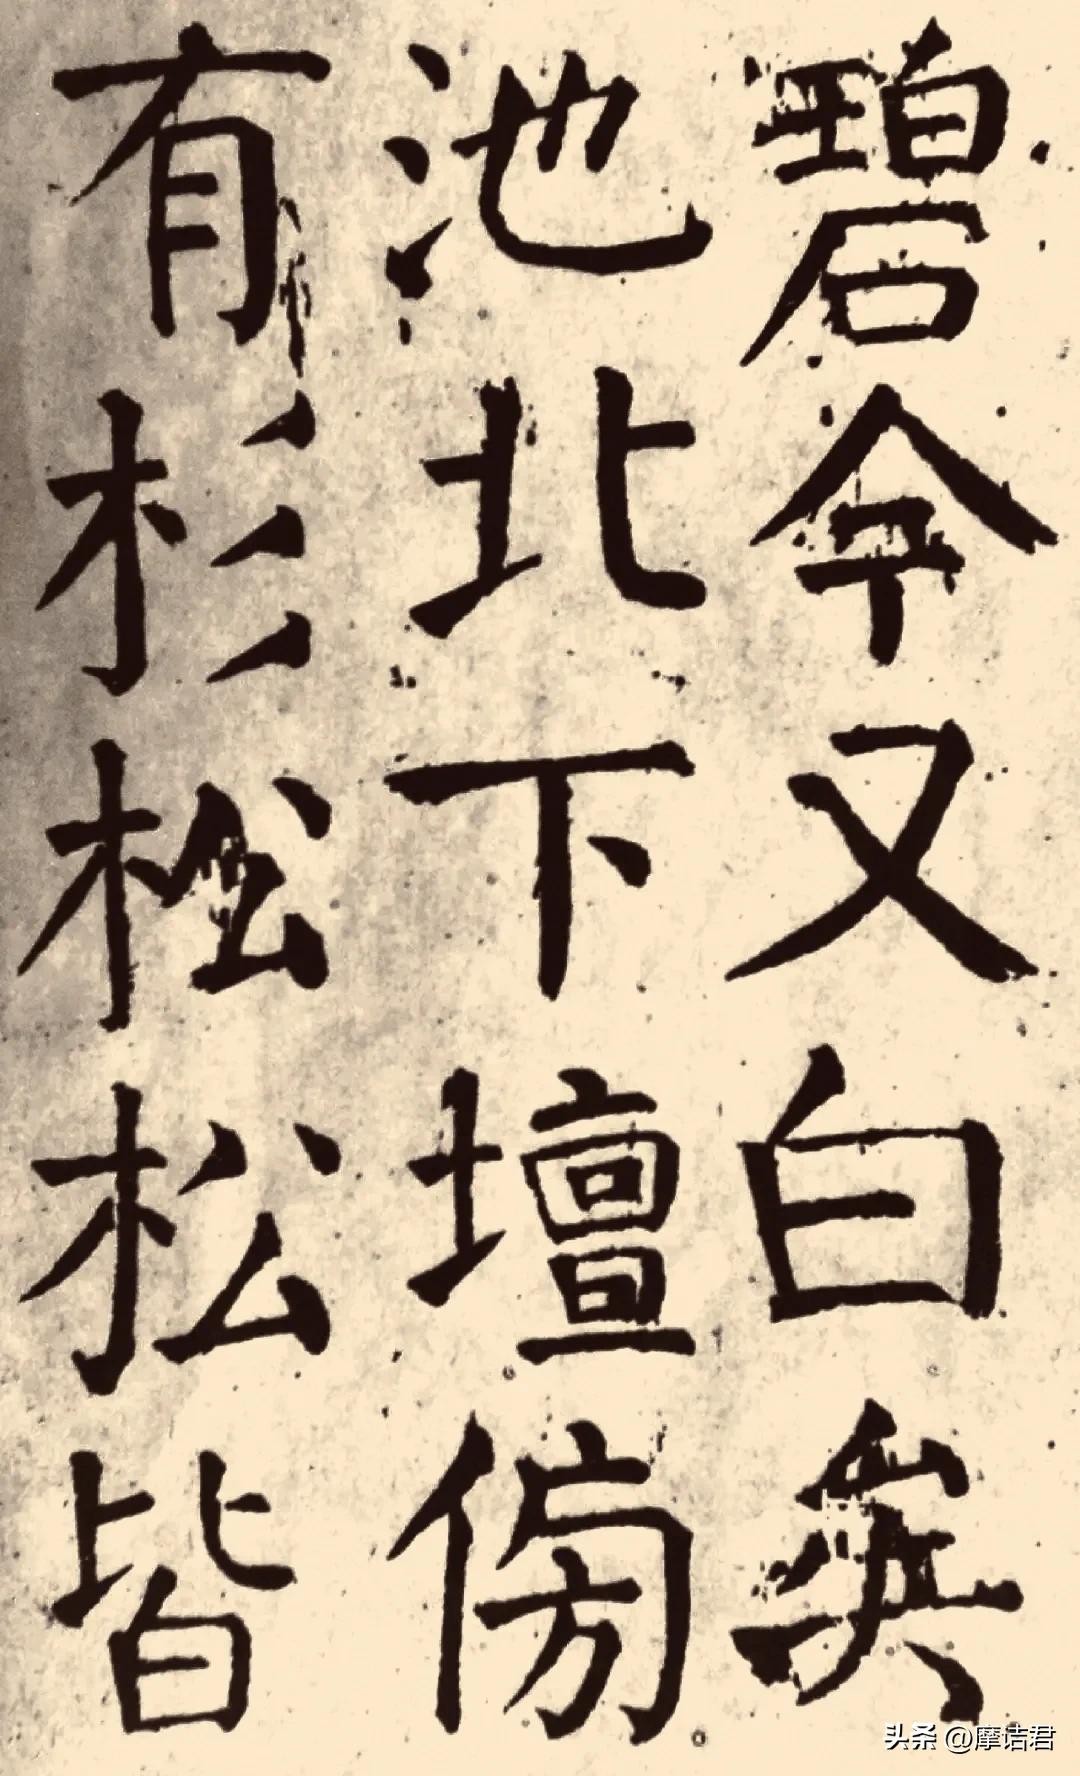 碧今又白矣
池北下壇傍
有杉松松皆
头条 @摩诘君